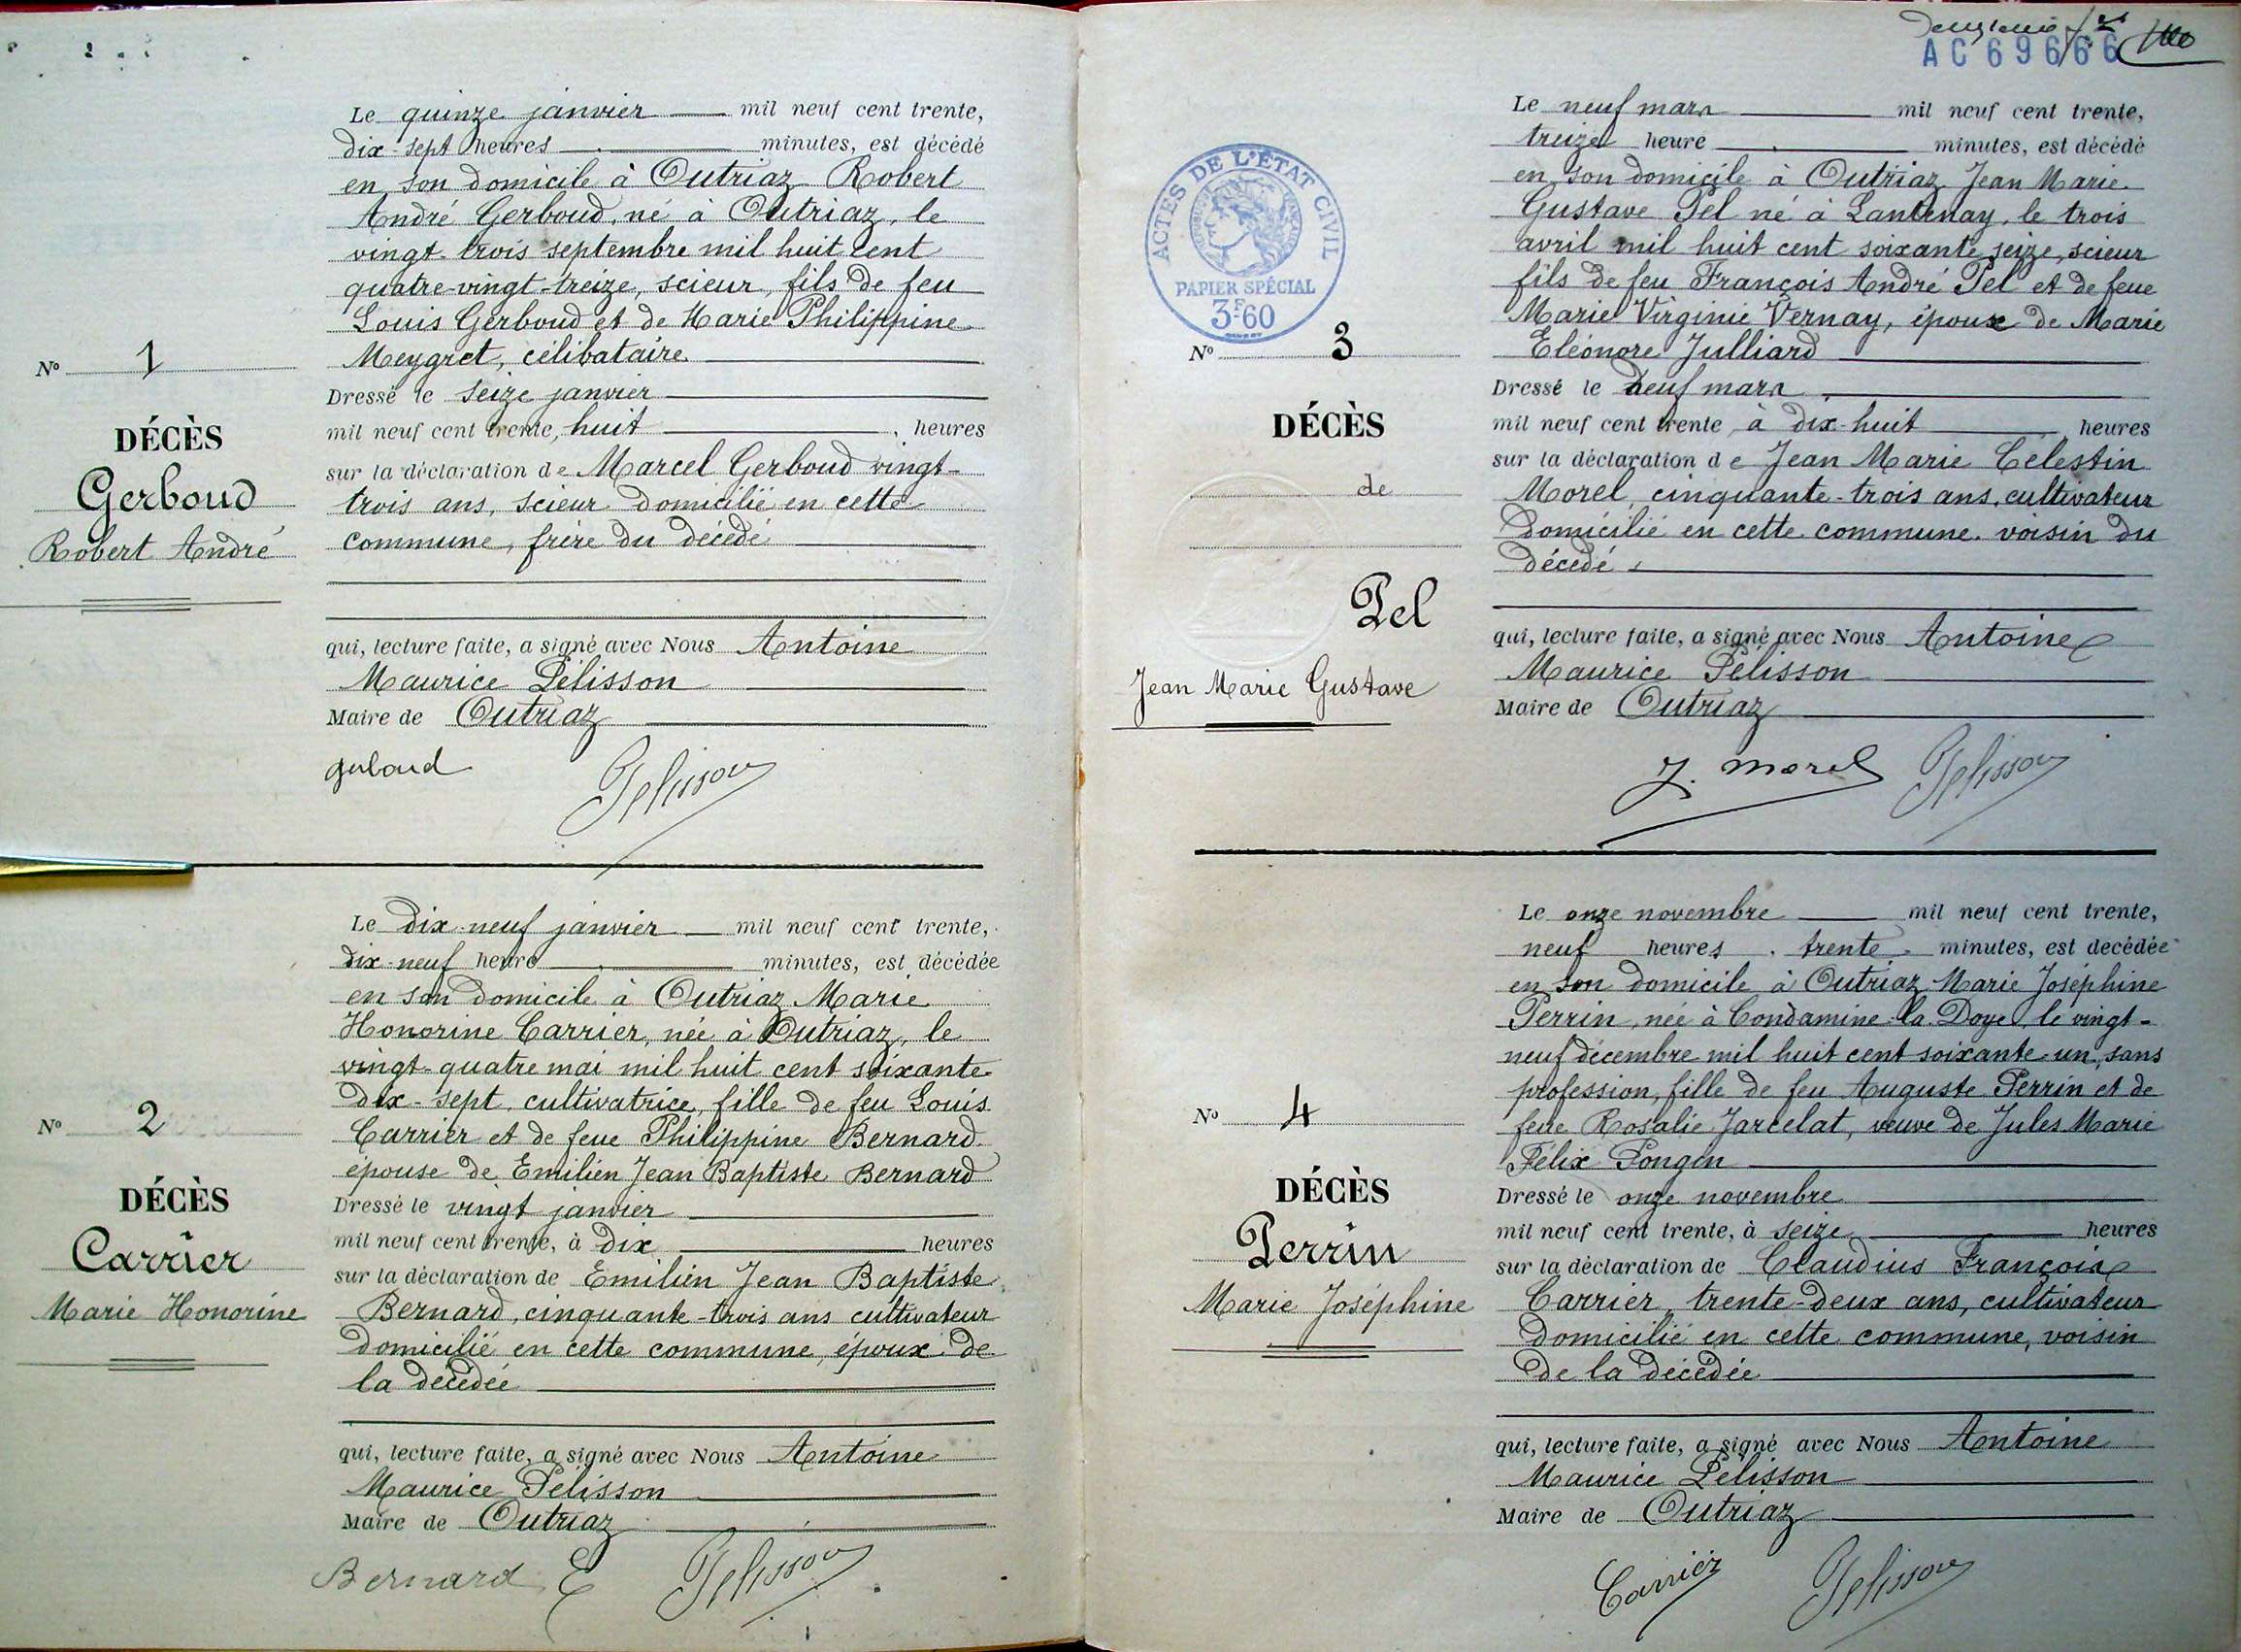 Le quinze janvier mil neuf cent trente,
dix-sept heures minutes, est décédé
en son domicile à Outriaz Robert
André Gerboud, né à Outriaz, le
vingt-trois septembre mil huit cent
quatre-vingt-treize, scieur, fils de feu
Louis Gerboud et de Marie Philippine
Meygret, célibataire
Dressé le seize janvier
mil neuf cent trente, huit heures
sur la déclaration de Marcel Gerboud vingt-
trois ans, scieur domicilié en cette
commune, frère du décédé
qui, lecture faite, a signé avec Nous Antoine
Maurice Pélisson
Maire de Outriaz
Pelisson
N° 1
DÉCÈS
Gerboud
Robert André
Le dix-neuf janvier mil neuf cent trente,
dix-neuf heure minutes, est décédée
en son domicile à Outriaz Marie
Honorine Carrier, née à Outriaz, le
vingt-quatre mai mil huit cent soixante
dix-sept, cultivatrice, fille de feu Louis
Carrier et de feue Philippine Bernard
épouse de Emilien Jean Baptiste Bernard
Dressé le vingt janvier
mil neuf cent trente, à dix heures
sur la déclaration de Emilien Jean Baptiste
Bernard, cinquante-trois ans cultivateur
domicilié en cette commune, époux de
la décédée
qui, lecture faite, a signé avec Nous Antoine
Maurice Pélisson
Maire de Outriaz
Bernard E Pelisson
N° 2
DÉCÈS
Carrier
Marie Honorine
AC 69666
ACTES DE L'ÉTAT CIVIL
PAPIER SPÉCIAL
3F60
Le neuf mars mil neuf cent trente,
treize heure minutes, est décédé
en son domicile à Outriaz Jean Marie
Gustave Pel né à Lantenay, le trois
avril mil huit cent soixante seize, scieur
fils de feu François André Pel et de feue
Marie Virginie Vernay, époux de Marie
Eléonore Julliard
Dressé le neuf mars
mil neuf cent trente, à dix-huit heures
sur la déclaration de Jean Marie Célestin
Morel, cinquante-trois ans, cultivateur
domicilié en cette commune. voisin du
décédé
qui, lecture faite, a signé avec Nous Antoine
Maurice Pélisson
Maire de Outriaz
J. Morel Pelisson
N° 3
DÉCÈS
de
Pel
Jean Marie Gustave
Le onze novembre mil neuf cent trente,
neuf heures trente minutes, est decédée
en son domicile à Outriaz Marie Joséphine
Perrin, née à Condamine-la-Doye, le vingt-
neuf décembre mil huit cent soixante-un, sans
profession, fille de feu Auguste Perrin et de
feue Rosalie Jarcelat, veuve de Jules Marie
Félix Pongen
Dressé le onze novembre
mil neuf cent trente, à seize heures
sur la déclaration de Claudius François
Carrier, trente-deux ans, cultivateur
domicilié en cette commune, voisin
de la décédée
qui, lecture faite, a signé avec Nous Antoine
Maurice Pélisson
Maire de Outriaz
Carrier Pelisson
N° 4
DÉCÈS
Perrin
Marie Joséphine